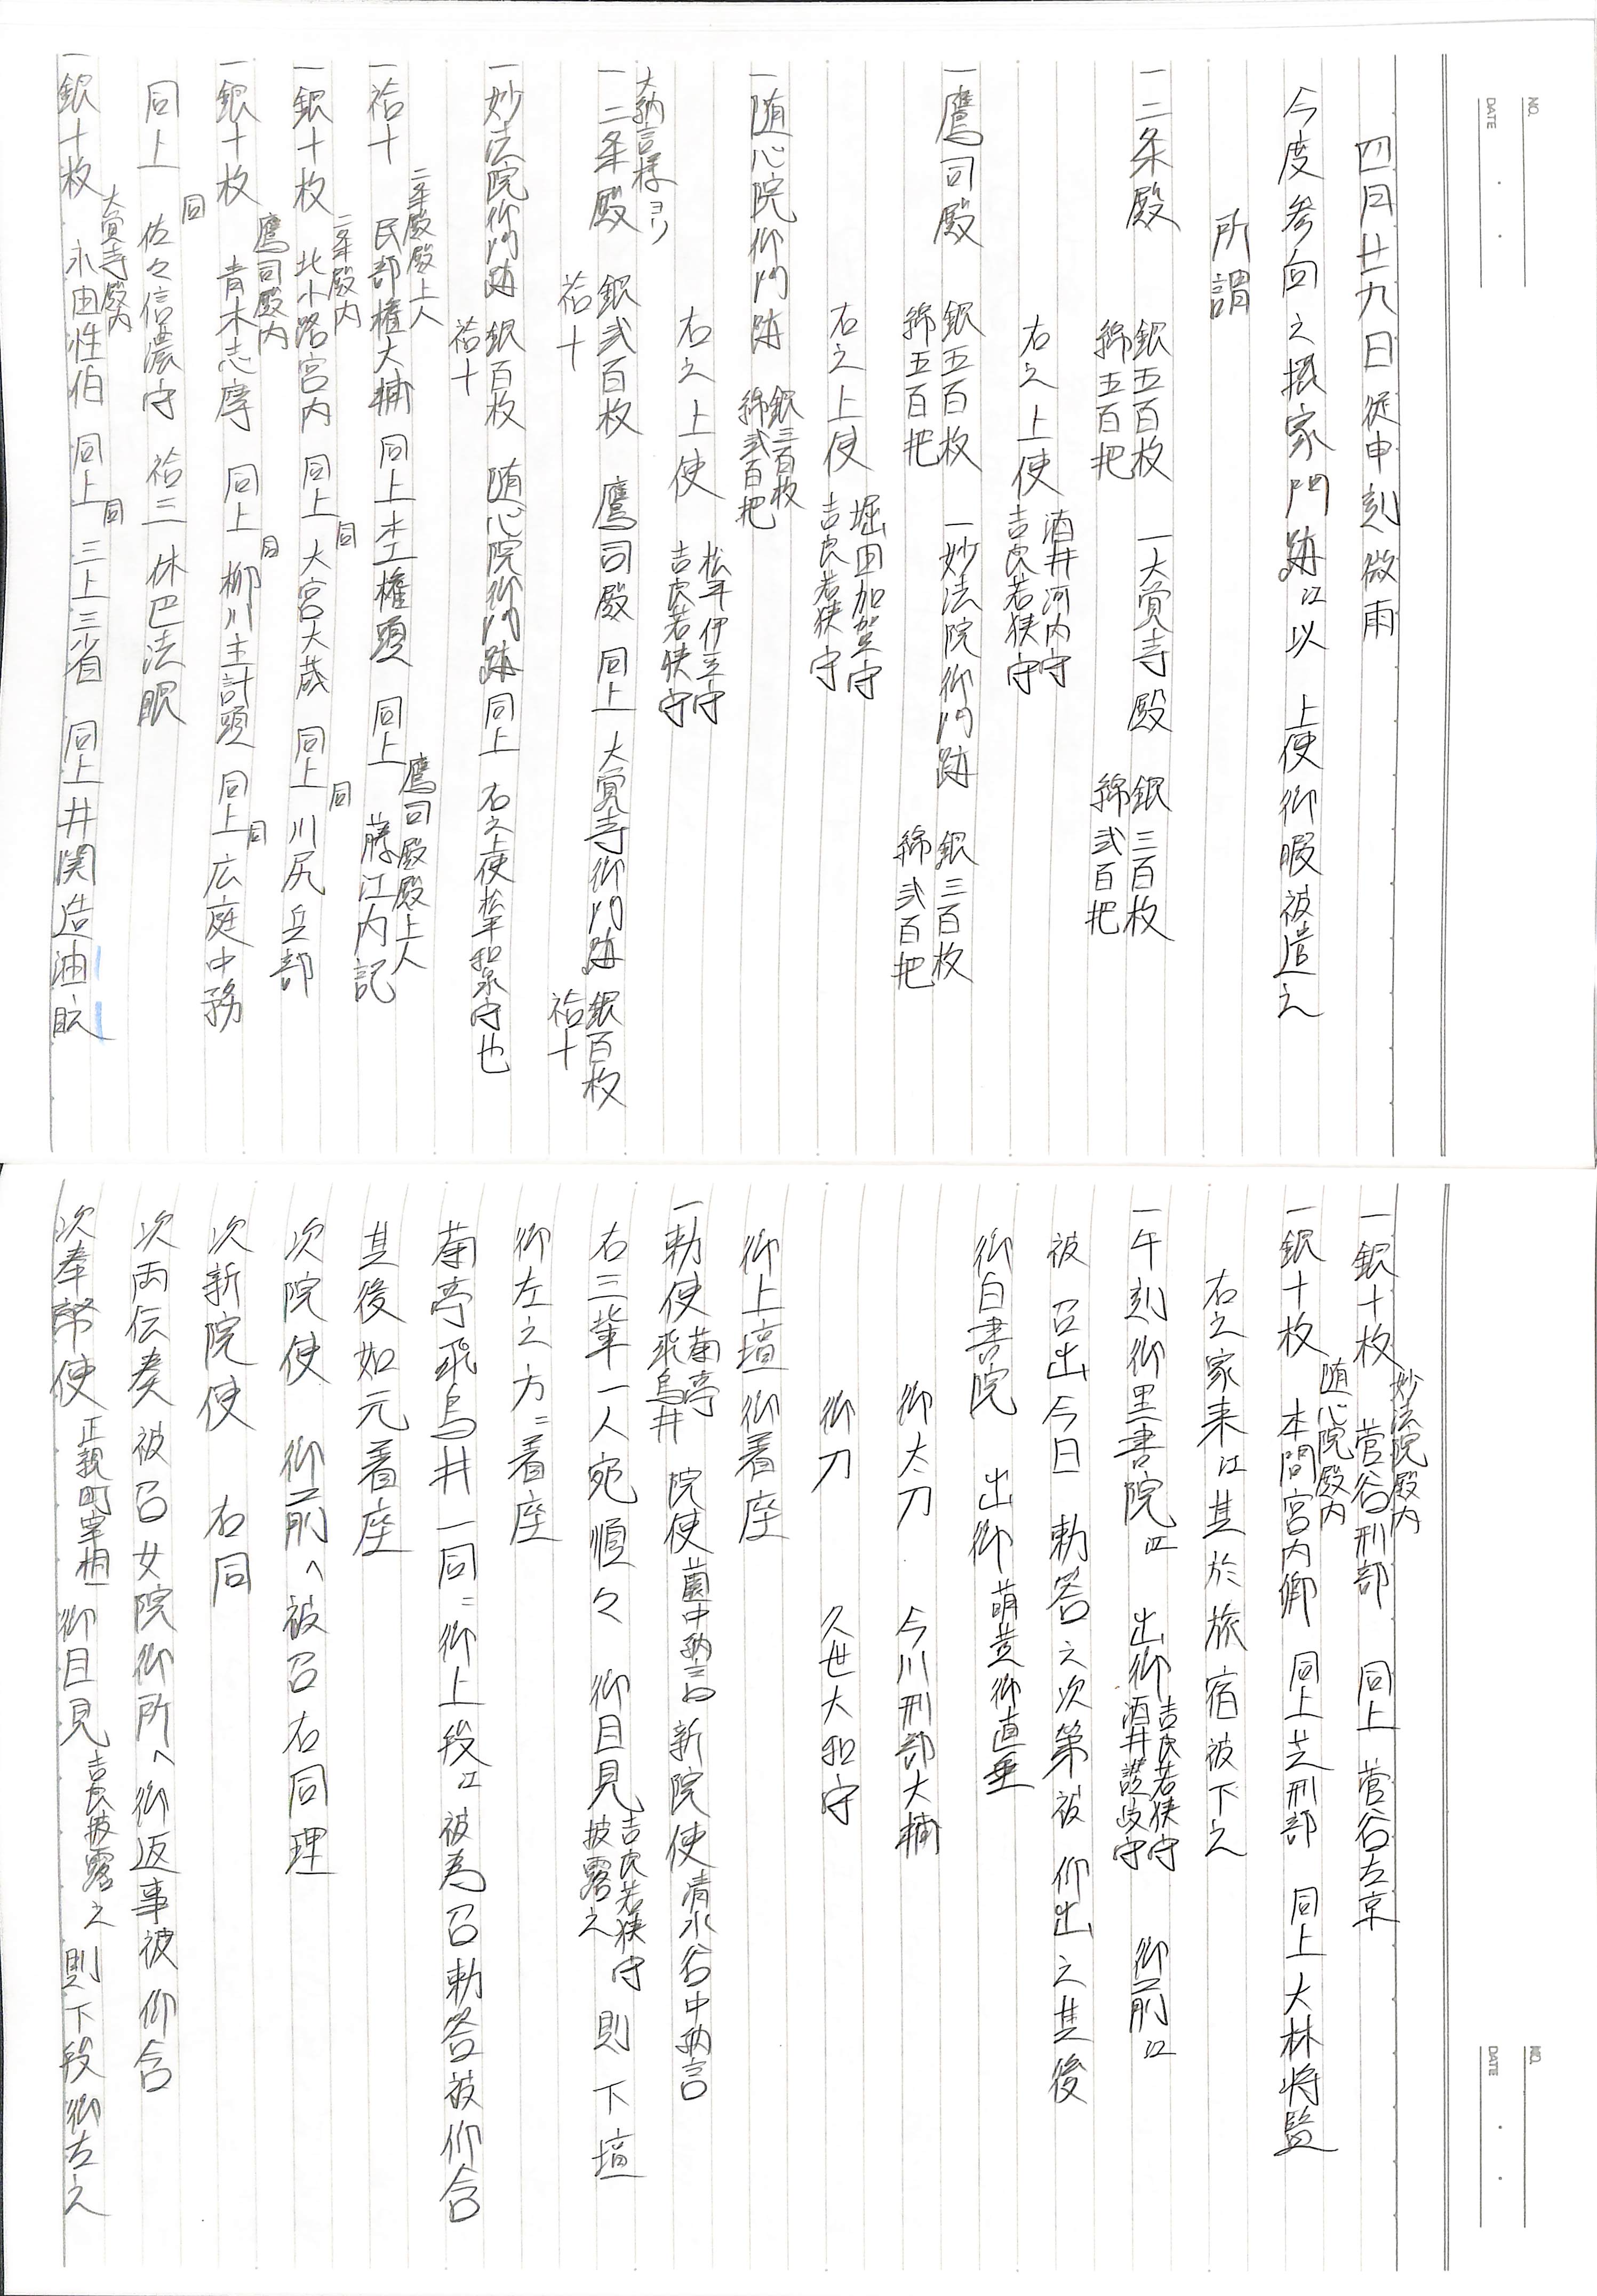 NO.
DATE
四月廿九日従申刻微雨
今度参向之摂家門跡江以 上使御暇被遣之
所謂
一二条殿 銀五百枚 綿五百把 一大覚寺殿 銀三百枚 綿弐百把
右之上使 酒井河内守 吉良若狭守
一鷹司殿 銀五百枚 綿五百把 一妙法院御門跡 銀三百枚 綿弐百把
右之上使 堀田加賀守 吉良若狭守
一随心院御門跡 銀三百枚 綿弐百把
右之上使 松平伊豆守 吉良若狭守
大納言様ヨリ
一二条殿 銀弐百枚 袷十 鷹司殿 同上 大覚寺御門跡 銀百枚 袷十
一妙法院御門跡 銀百枚 袷十 随心院御門跡 同上 右之上使松平和泉守也
一袷十 二条殿殿上人 民部権大輔 同上 木工権頭 同上 鷹司殿殿上人 藤江内記
一銀十枚 二条殿内 北小路宮内 同上 同 大宮大蔵 同上 同 川尻兵部
一銀十枚 鷹司殿内 青木志摩 同上 同 柳川主計頭 同上 同 広庭中務
同上 同 佐々信濃守 袷三 休巴法眼
一銀十枚 大覚寺殿内 永田性伯 同上 同 三上三省 同上 井関造油
NO.
DATE
一銀十枚 妙法院殿内 菅谷刑部 同上 菅谷左京
一銀十枚 随心院殿内 本間宮内卿 同上 芝刑部 同上 大林将監
右之家来江其於旅宿被下之
一午刻御黒書院江 出御 吉良若狭守 酒井讃岐守 御前江
被 召出今日 勅答之次第被 仰出之其後
御白書院 出御 萌黄御直垂
御太刀 今川刑部大輔
御刀 久世大和守
御上壇御着座
一勅使 菊亭 飛鳥井 院使 薗中納言 新院使 清水谷中納言
右三輩一人宛順々 御目見 吉良若狭守 披露之 則下壇
御左之方ニ着座
菊亭飛鳥井一同ニ御上段江被為召勅答被仰含
其後如元着座
次院使 御前へ被召右同理
次新院使 右同
次両伝奏被召女院御所へ御返事被仰含
次奉幣使 正親町宰相 御目見 吉良披露之 則下段御左之